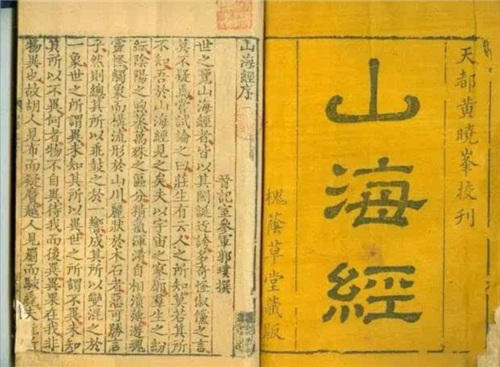 天都黄曉峯挍刊
山海經
槐蔭草堂藏版
山海經序
晉記室參軍郭璞撰
世之覽山海經者皆以其閎誕迂誇多奇怪俶儻之言
莫不疑焉嘗試論之曰莊生有云人之所知莫若其所
不知吾於山海經見之矣夫以宇宙之寥廓羣生之紛
紜陰陽之煦蒸萬殊之區分精氣渾淆自相濆薄遊魂
靈怪觸象而構流形於山川麗狀於木石者惡可勝言
乎然則總其所以乖鼓之於響成其所以變混之於
一象世之所謂異未知其所以異世之所謂不異未知
其所以不異何者物不自異待我而後異異果在我非
物異也故胡人見布而疑黂越人見罽而駭毳夫